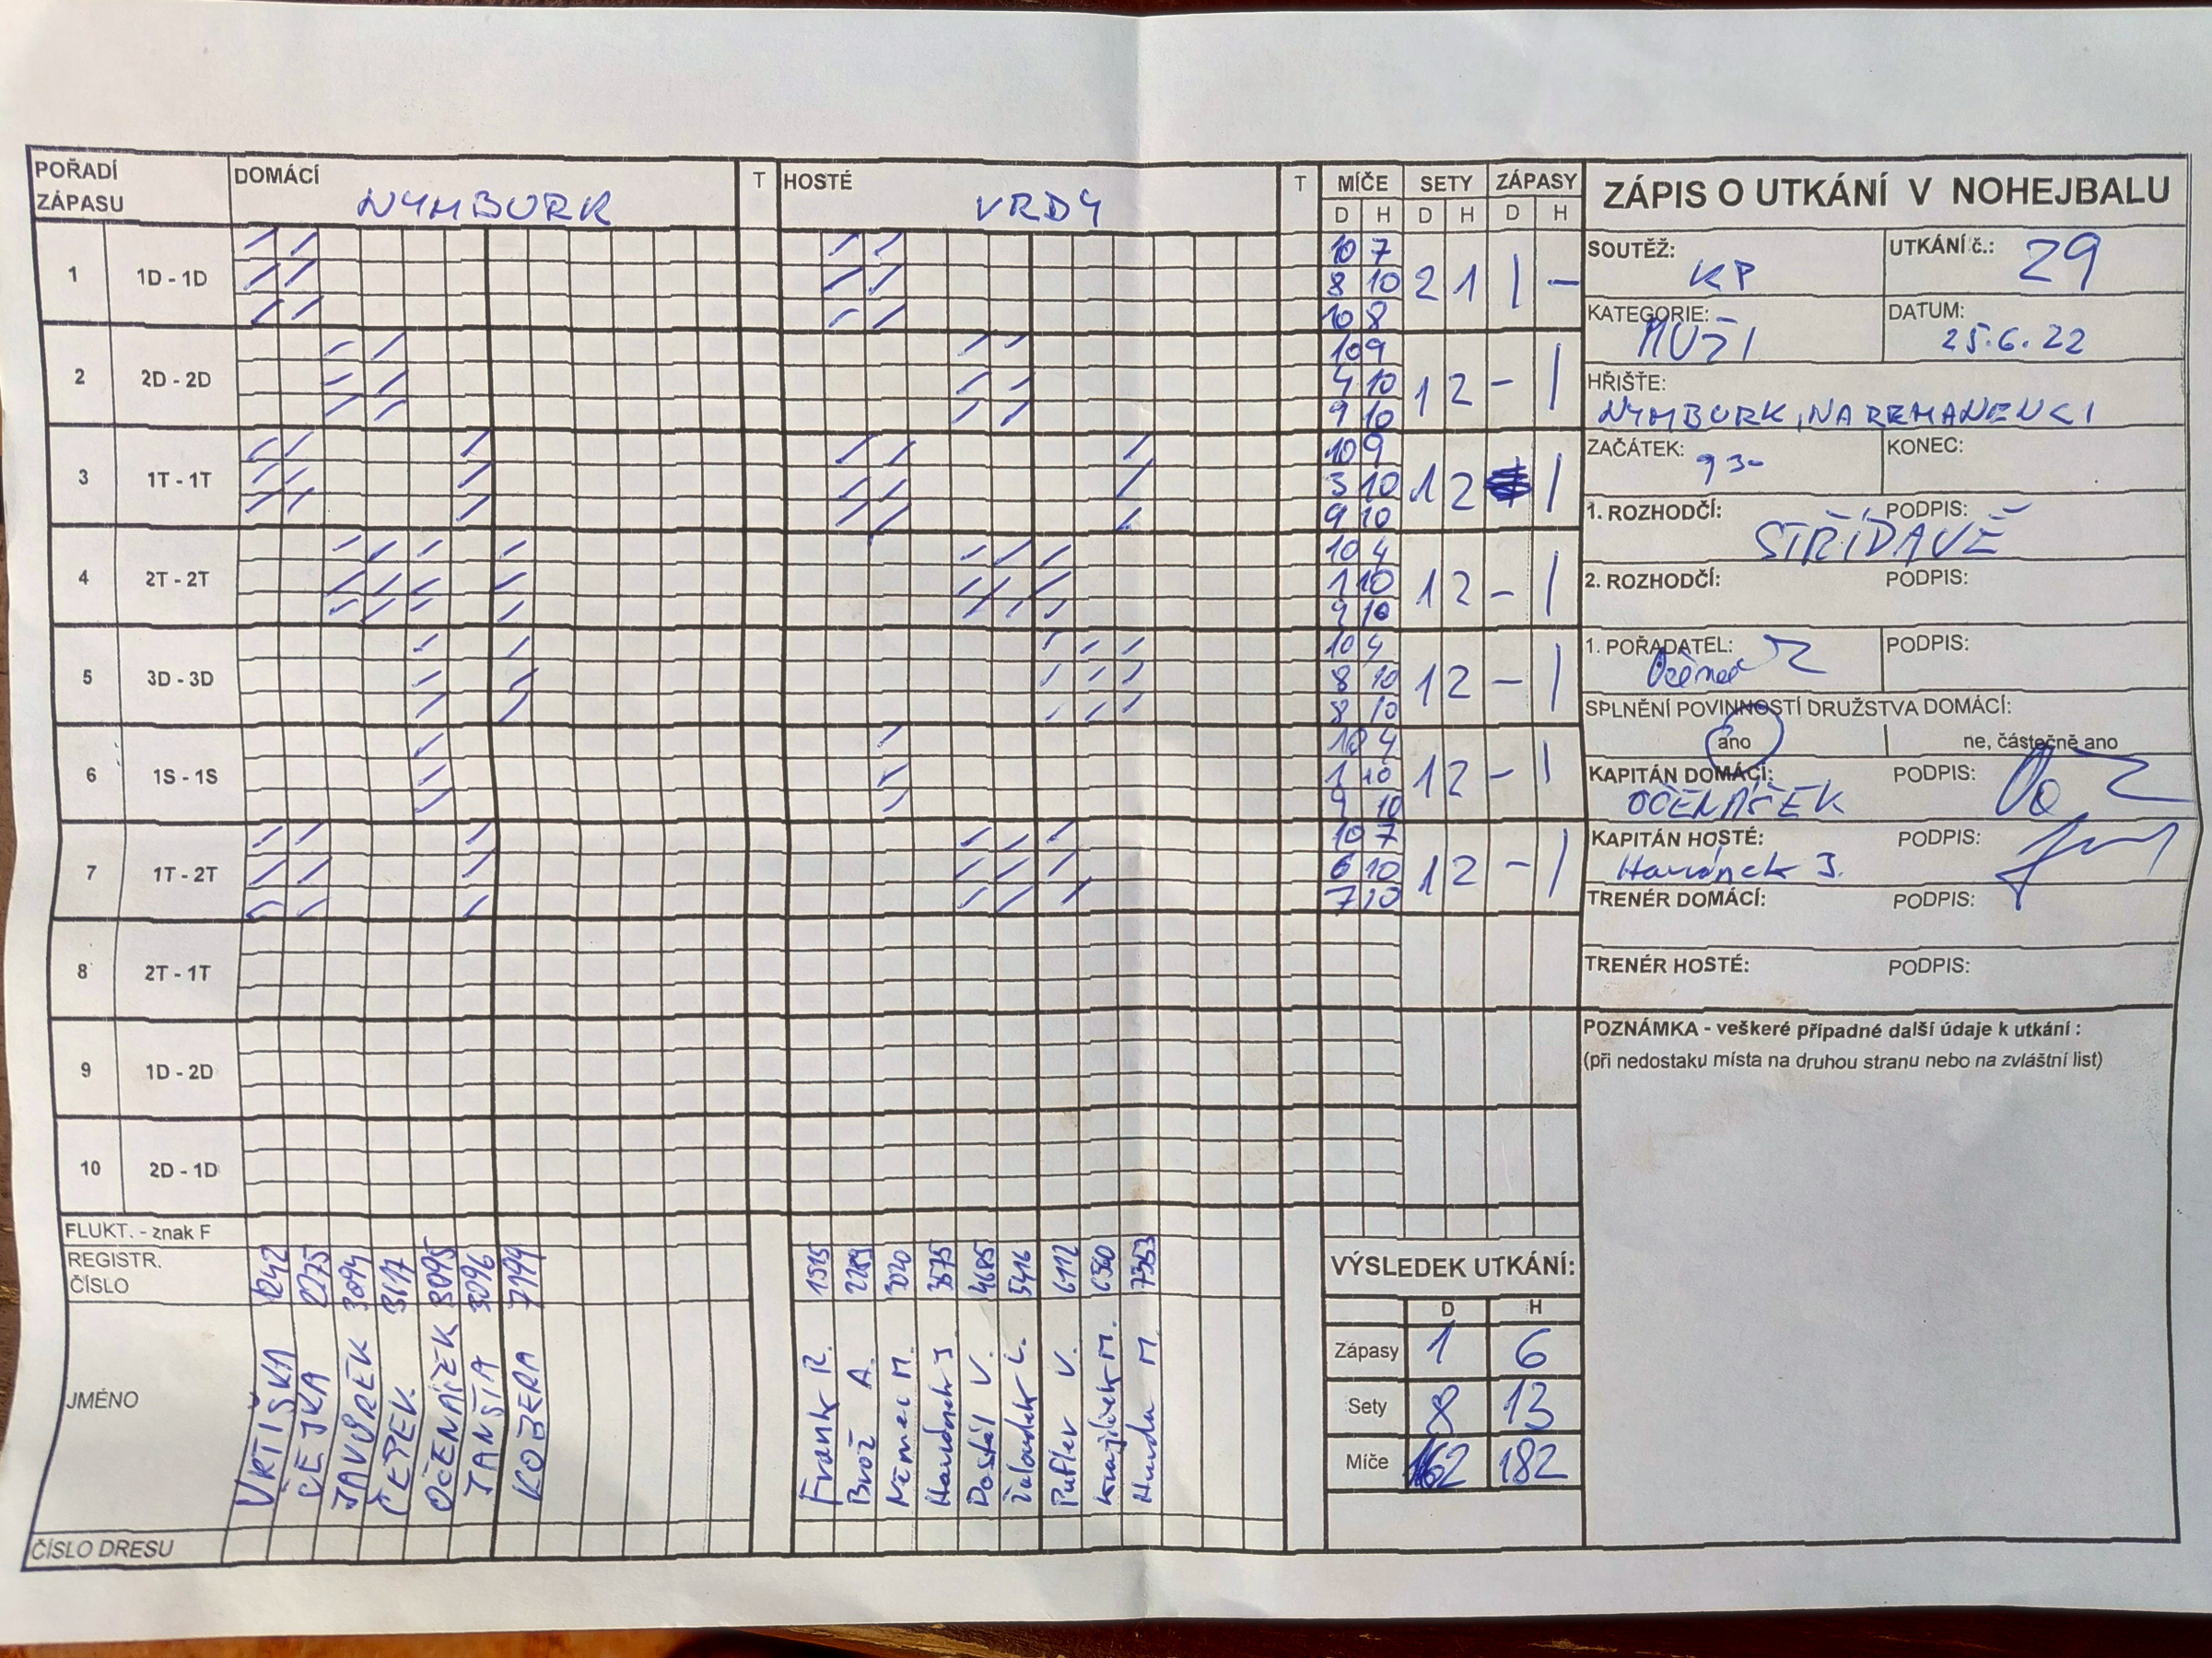 POŘADÍ ZÁPASU DOMÁCÍ T HOSTÉ T MÍČE SETY ZÁPASY
NYMBURK VRDY D H D H D H
1 1D - 1D 10 7 2 1 | –
8 10
10 8
2 2D - 2D 10 9 1 2 – |
4 10
9 10
3 1T - 1T 10 9 1 2 |
3 10
9 10
4 2T - 2T 10 4 1 2 – |
1 10
9 10
5 3D - 3D 10 4 1 2 – |
8 10
8 10
6 1S - 1S 10 4 1 2 – |
1 10
9 10
7 1T - 2T 10 7 1 2 – |
6 10
7 10
8 2T - 1T
9 1D - 2D
10 2D - 1D
FLUKT. - znak F
REGISTR. ČÍSLO
1242 2275 3094 3117 3095 3096 7199
1515 2289 3020 3575 4685 5416 6112 6360 7353
JMÉNO
VRTIŠKA
ČEJKA
JAVŮREK
ČEPEK
OČENÁŠEK
JANŠTA
KOBERA
Frank R.
Brož A.
Němec M.
Havránek J.
Dostál V.
Žaloudek L.
Pufler V.
Krajíček M.
Hruda M.
ČÍSLO DRESU
ZÁPIS O UTKÁNÍ V NOHEJBALU
SOUTĚŽ: KP UTKÁNÍ č.: 29
KATEGORIE: MUŽI DATUM: 25.6.22
HŘIŠTE: NYMBURK, NA REMANENCI
ZAČÁTEK: 9 30 KONEC:
1. ROZHODČÍ: PODPIS:
STŘÍDAVĚ
2. ROZHODČÍ: PODPIS:
1. POŘADATEL: PODPIS:
SPLNĚNÍ POVINNOSTÍ DRUŽSTVA DOMÁCÍ:
ano ne, částečně ano
KAPITÁN DOMÁCÍ: PODPIS:
OČENÁŠEK
KAPITÁN HOSTÉ: PODPIS:
Havránek J.
TRENÉR DOMÁCÍ: PODPIS:
TRENÉR HOSTÉ: PODPIS:
POZNÁMKA - veškeré případné další údaje k utkání :
(při nedostaku místa na druhou stranu nebo na zvláštní list)
VÝSLEDEK UTKÁNÍ:
D H
Zápasy 1 6
Sety 8 13
Míče 162 182